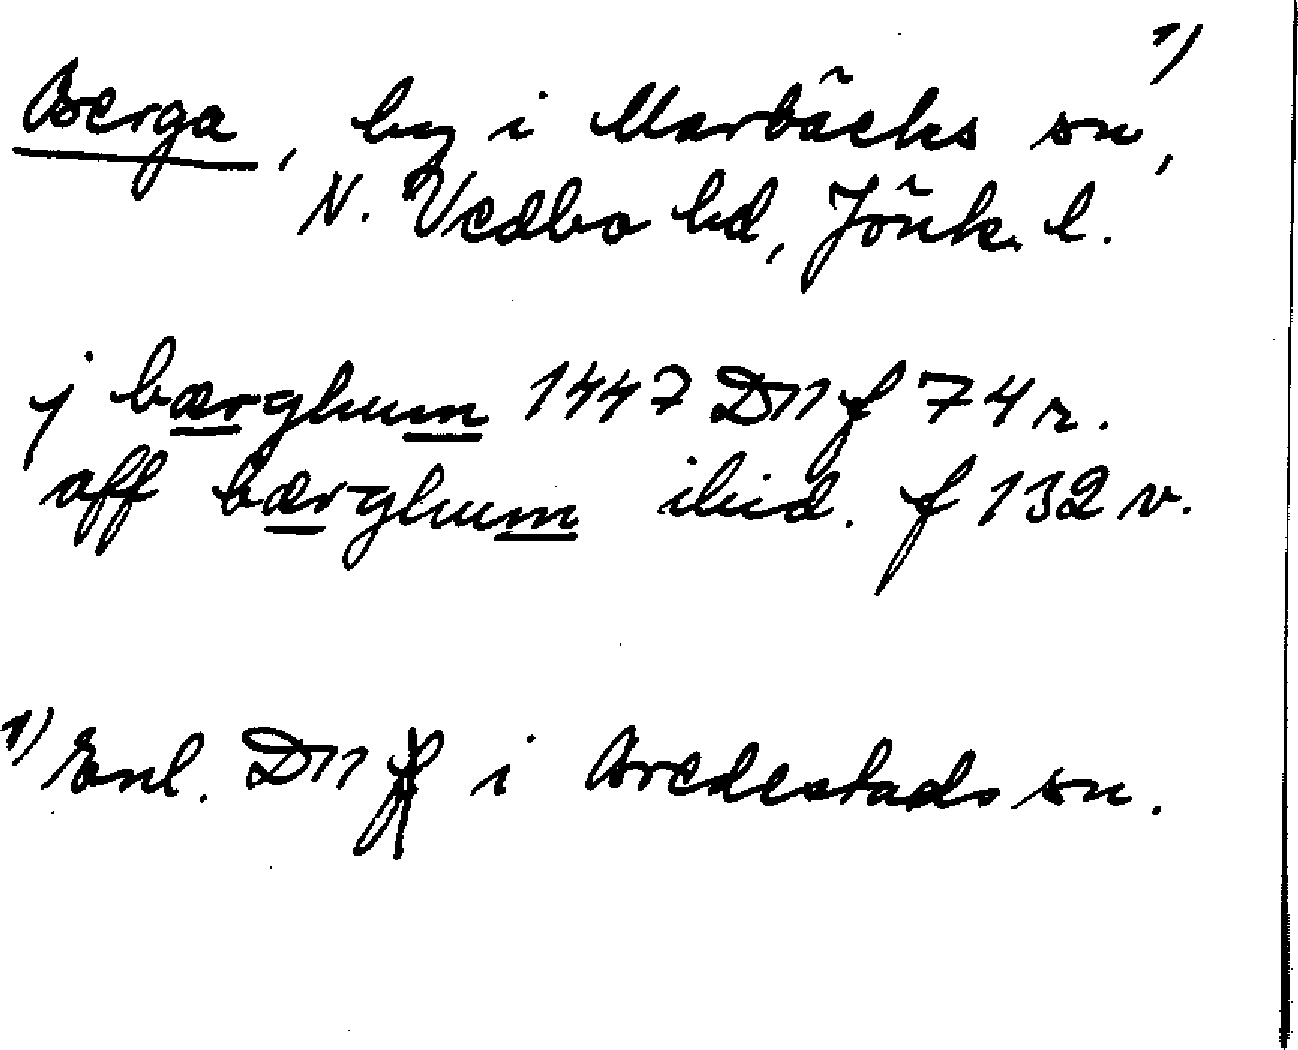 Berga, by i Marbäcks sn, 1)
N. Vedbo hd, Jönk. l.
j bærghum 1447 D11 f 74 r.
aff bærghum ibid. f 132 v.
1) Enl. D11 i Bredestads sn.